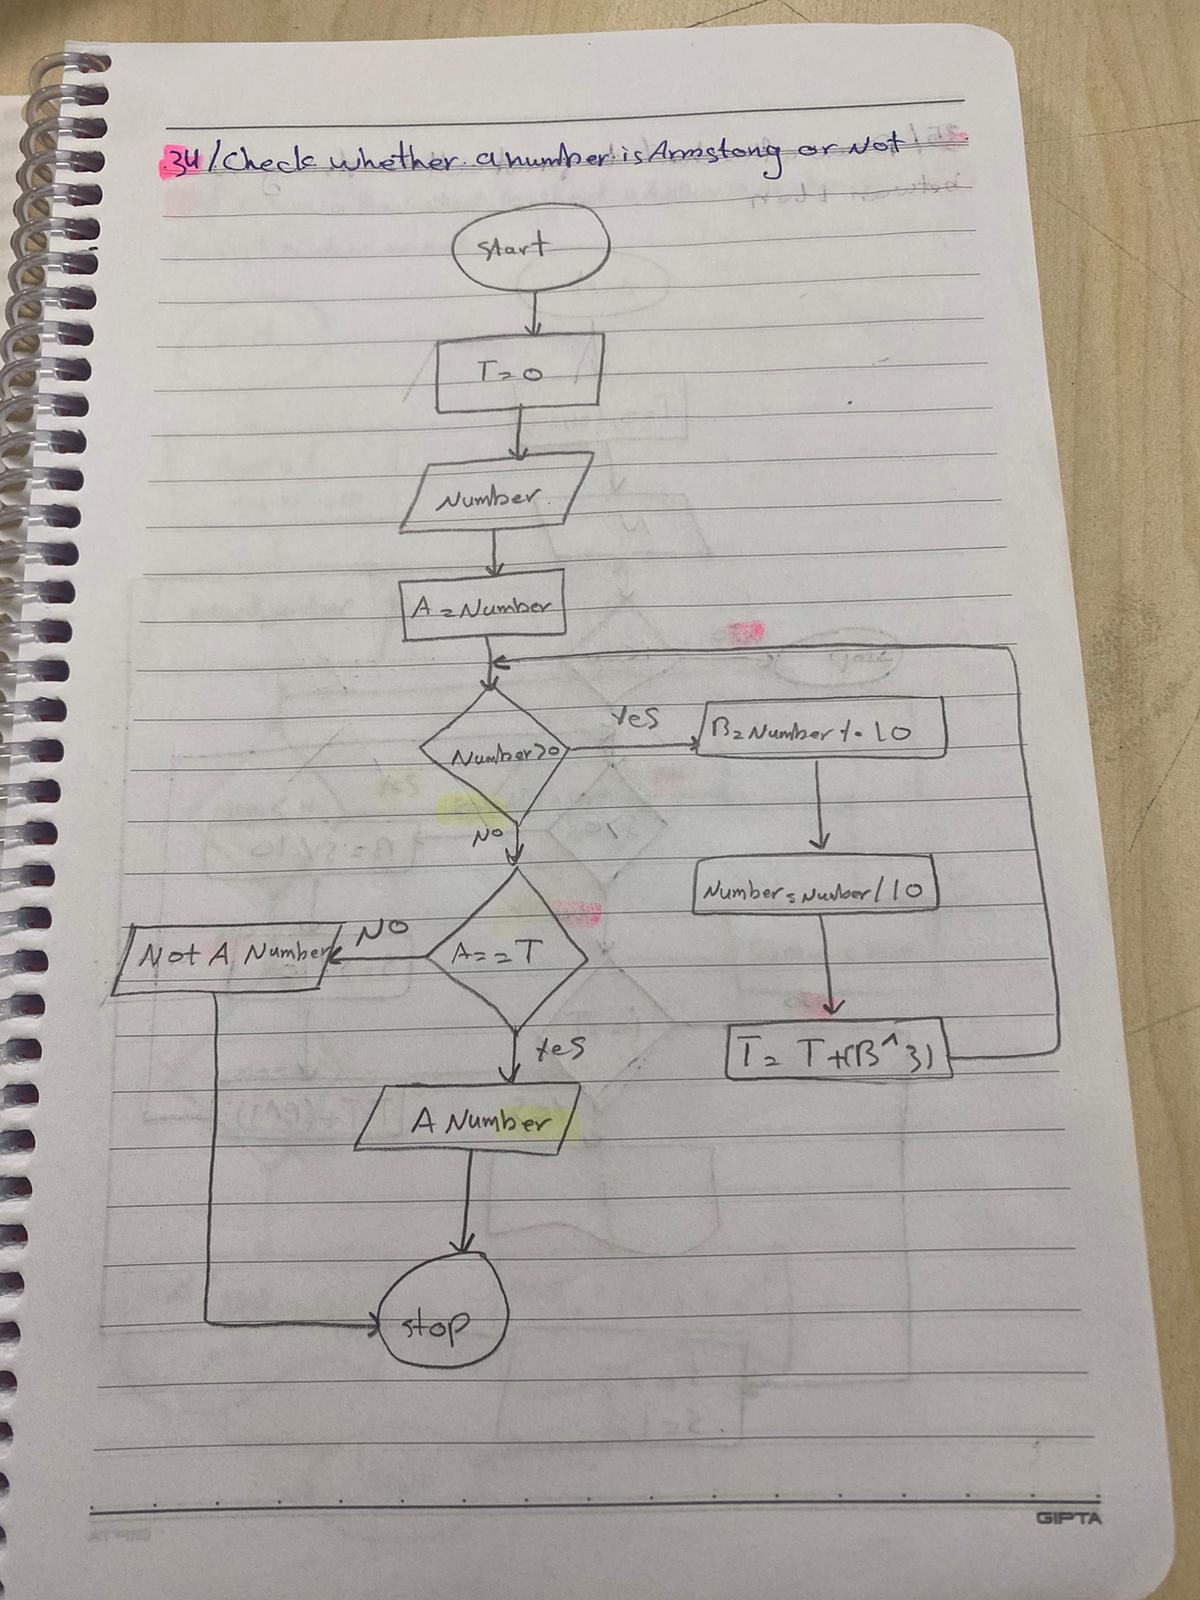 34/Check whether a number is Armstong or Not
start
T=0
Number
A=Number
Number>0
Yes
B=Number % 10
No
Number=Number/10
Not A Number
NO
A==T
T= T+(B^3)
Yes
A Number
stop
GIPTA